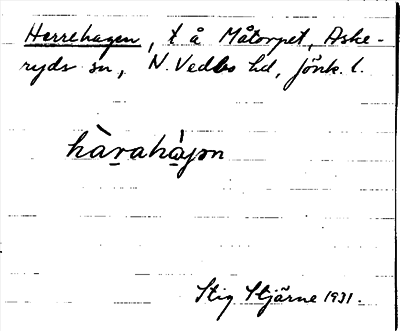 Herrehagen, t å Måtorpet, Aske-
ryds sn, N. Vedbo hd, Jönk. l.
hàrahàgən
Stig Stjärne 1931.